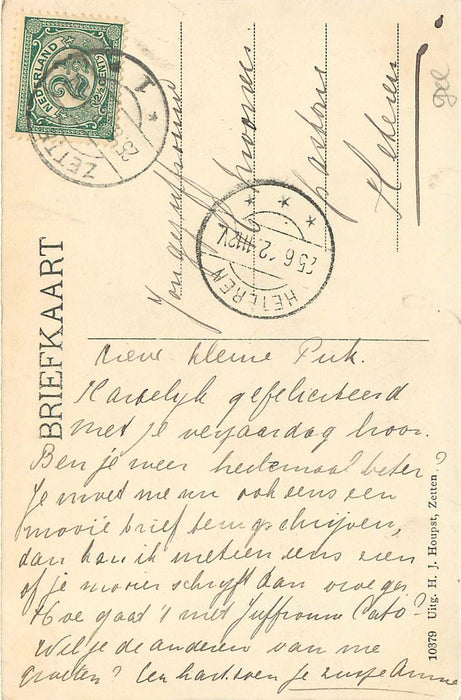 NEDERLAND
2½ CENT
ZETTEN
1
Jongejuffrouw
Heteren
HETEREN
25.6.12.11-12V
BRIEFKAART
Lieve kleine Puk.
Hartelijk gefeliciteerd
met je verjaardag hoor.
Ben je weer heelemaal beter?
Je moet me nu ook eens een
mooie brief terugschrijven,
dan kan ik meteen eens zien
of je mooier schrijft dan vroeger
Hoe gaat 't met Juffrouw Cato?
Wil je de anderen van me
groeten? Een hart. zoen je zusje Anna
10379 Uitg. H. J. Houpst, Zetten